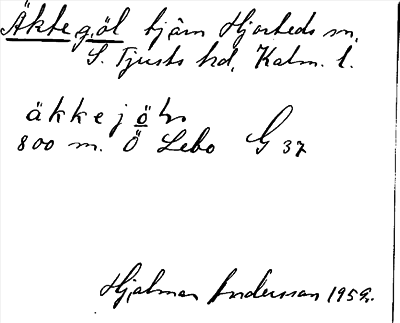 Äkkegöl tjärn Hjorteds sn.
S. Tjusts hd, Kalm. l.
äkkejöln
800 m. Ö Lebo G 37
Hjalmar Andersson 1959.